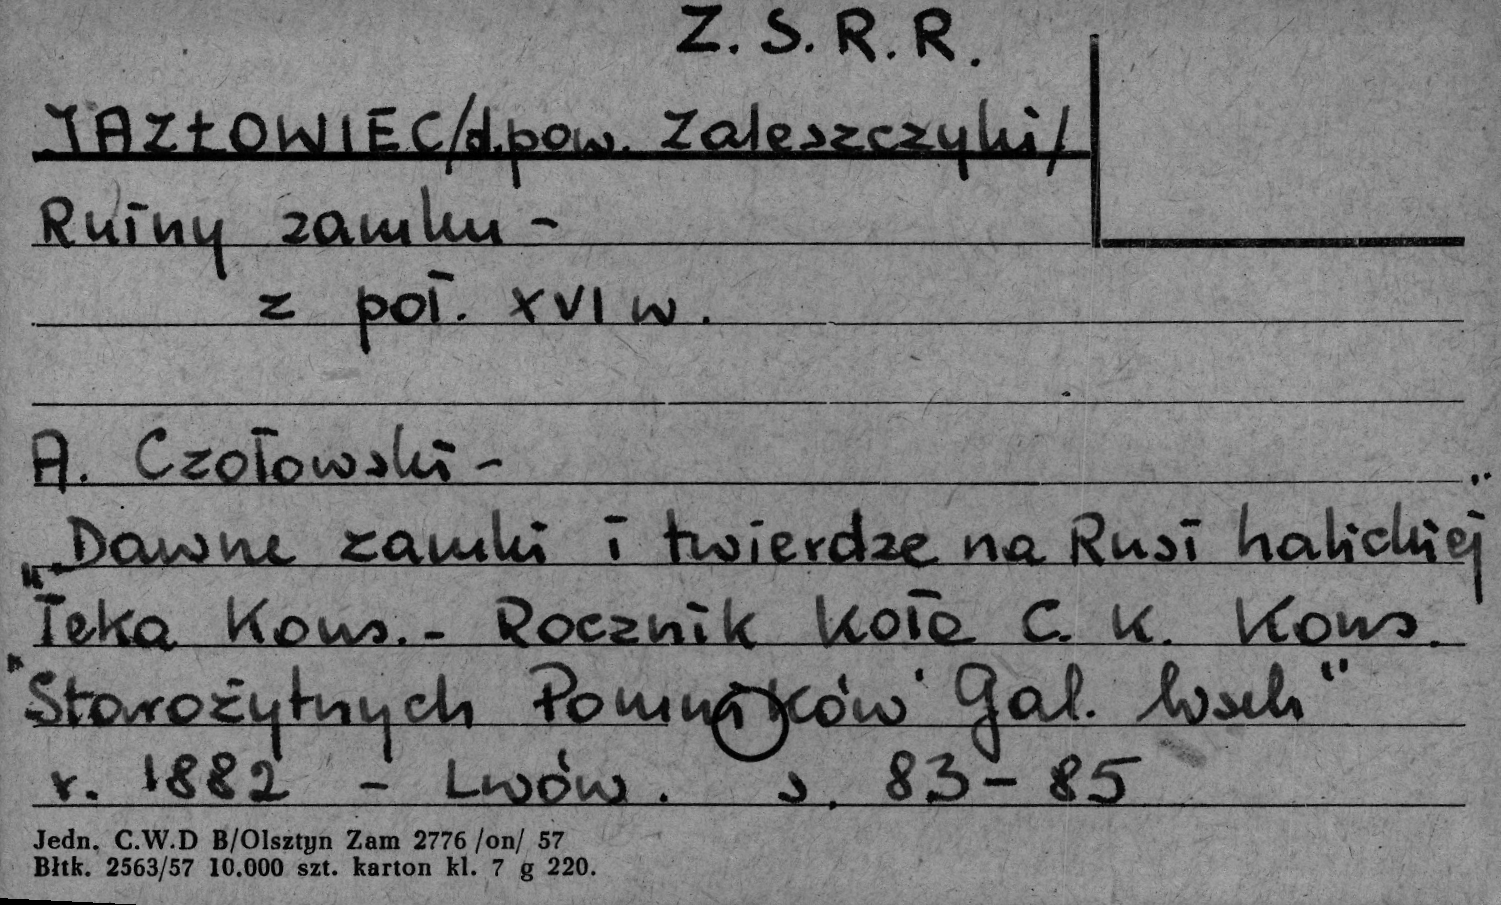 Z. S. R. R.
JAZŁOWIEC/d.pow. Zaleszczyki/
Ruiny zamku -
z poł. XVI w.
A. Czołowski -
"Dawne zamki i twierdze na Rusi halickiej"
"Teka Kons. - Rocznik koła C. K. Kons.
Starożytnych Pomników Gal. Wsch"
r. 1882 - Lwów. s. 83-85
Jedn. C.W.D B/Olsztyn Zam 2776 /on/ 57
Błtk. 2563/57 10.000 szt. karton kl. 7 g 220.